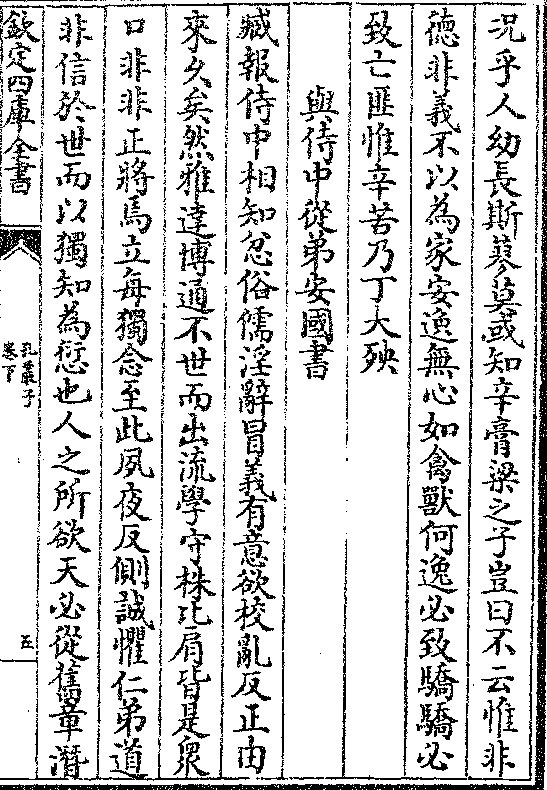 況乎人幼長斯蓼莫或知辛膏梁之子豈曰不云惟非
德非義不以為家安逸無心如禽獸何逸必致驕驕必
致亡匪惟辛苦乃丁大殃
與侍中從弟安國書
臧報侍中相知忿俗儒淫辭冒義有意欲校亂反正由
來久矣然雅達博通不世而出流學守株比肩皆是衆
口非非正將焉立每獨念至此夙夜反側誠懼仁弟道
非信於世而以獨知為愆也人之所欲天必從舊章潛
欽定四庫全書
孔叢子
卷下
五